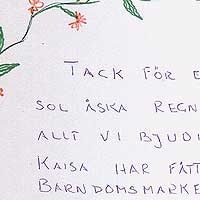 TACK FÖR
SOL ÅSKA REGN
ALLT VI BJUDI
KAISA HAR FÅTT
BARNDOMSMARKE